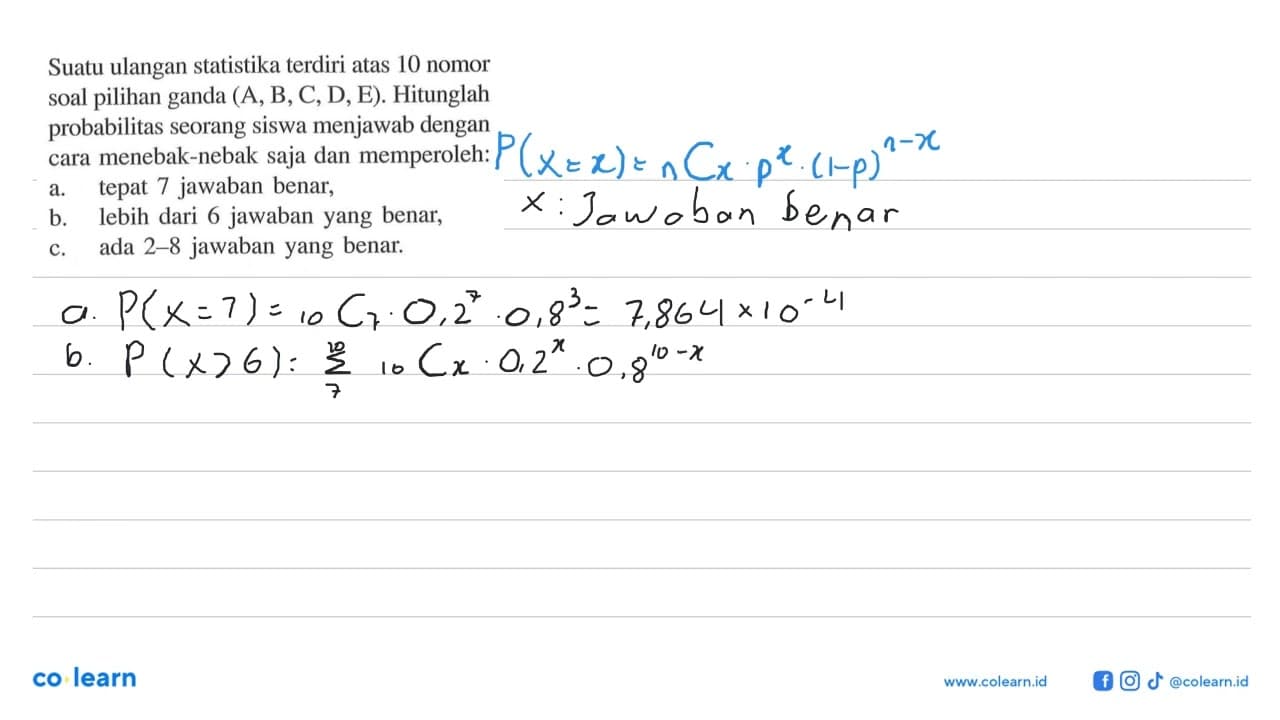 Suatu ulangan statistika terdiri atas 10 nomor
soal pilihan ganda (A, B, C, D, E). Hitunglah
probabilitas seorang siswa menjawab dengan
cara menebak-nebak saja dan memperoleh:
a. tepat 7 jawaban benar,
b. lebih dari 6 jawaban yang benar,
c. ada 2–8 jawaban yang benar.
P(X=x)= nCx·pˣ·(1-p)ⁿ⁻ˣ
X : Jawaban benar
a. P(X=7)= ₁₀C₇·0,2⁷·0,8³= 7,864×10⁻⁴
b. P(X>6): 10Σ7 ₁₀Cx·0,2ˣ·0,8¹⁰⁻ˣ
co learn
www.colearn.id @colearn.id